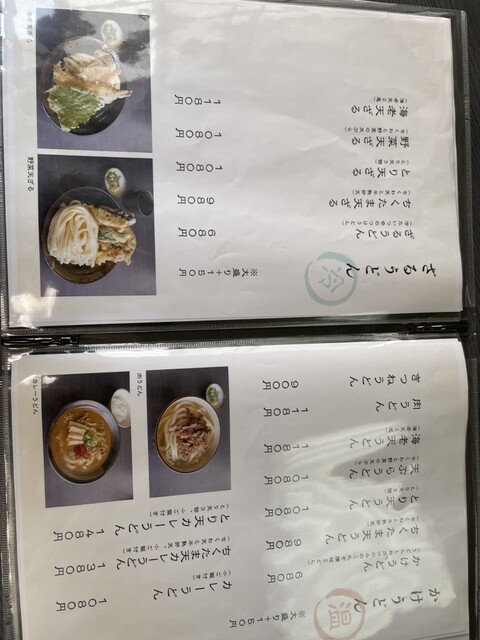 ざるうどん
冷
※大盛り+150円
ざるうどん
(冷たいつゆのつけうどん)
680円
ちくたま天ざる
(ちくわ天と半熟卵天)
980円
とり天ざる
(とり天3個)
1080円
野菜天ざる
(ちくわと野菜の天ぷら)
1080円
海老天ざる
(海老天2尾)
1180円
野菜天ざる
かけうどん
温
※大盛り+150円
かけうどん
680円
ちくたま天うどん
(ちくわ天と半熟卵天)
980円
とり天うどん
(とり天3個)
1080円
天ぷらうどん
(ちくわと野菜の天ぷら)
1080円
海老天うどん
(海老天2尾)
1180円
肉うどん
1180円
きつねうどん
900円
カレーうどん
(小ご飯付き)
1080円
ちくたま天カレーうどん
(ちくわ天と半熟卵天、小ご飯付き)
1380円
とり天カレーうどん
(とり天3個、小ご飯付き)
1480円
肉うどん
カレーうどん